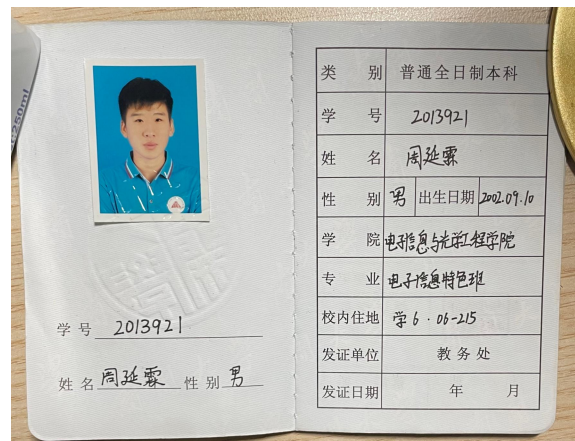 ≤250ml
学号 2013921
姓名 周延霖 性别 男
类别 普通全日制本科
学号 2013921
姓名 周延霖
性别 男 出生日期 2002.09.10
学院 电子信息与光学工程学院
专业 电子信息特色班
校内住地 学6·06-215
发证单位 教务处
发证日期 年 月